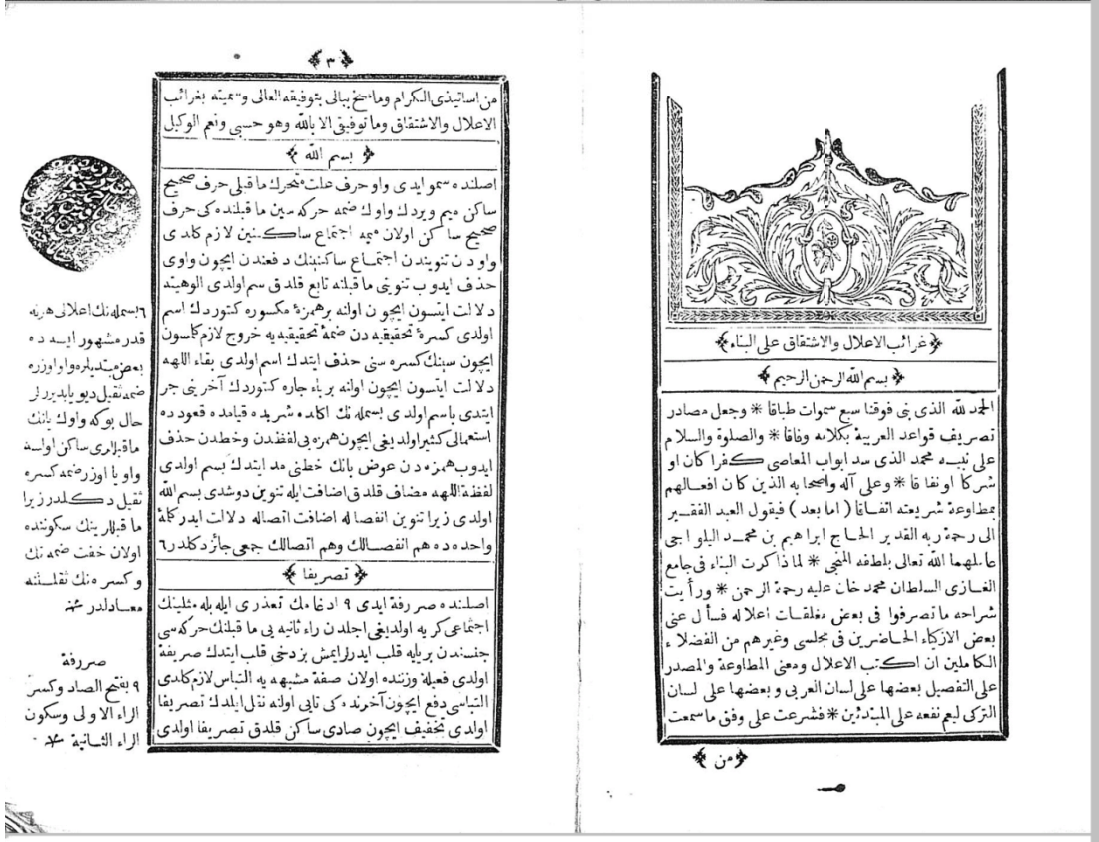 ﴿ غرائب الاعلال والاشتقاق على البناء ﴾
﴿ بسم الله الرحمن الرحيم ﴾
الحمد لله الذى بنى فوقنا سبع سموات طباقا * وجعل مصادر
تصريف قواعد العربية بكلامه وفاقا * والصلوة والسلام
على نبيه محمد الذى سد ابواب المعاصى كفرا كان او
شركا او نفاقا * وعلى آله واصحابه الذين كان افعالهم
بمطاوعة شريعته اتفاقا ( اما بعد ) فيقول العبد الفقير
الى رحمة ربه القدير الحاج ابراهيم بن محمد اليلواجى
عاملهما الله تعالى بلطفه * لما ذاكرت البناء فى جامع
الغازى السلطان محمد خان عليه رحمة الرحمن * ورأيت
شراحه ما تصرفوا فى بعض مغلقات اعلاله فسأل عنى
بعض الازكياء الحاضرين فى مجلسى وغيرهم من الفضلاء
الكاملين ان اكتب الاعلال ومعنى المطاوعة والمصدر
على التفصيل بعضها على لسان العربى وبعضها على لسان
التركى ليعم نفعه على المبتدئين * فشرعت على وفق ما سمعت
﴿ من ﴾
﴿ ٣ ﴾
من اساتيذى الكرام وما سنح ببالى بتوفيقه العالى وسميته بغرائب
الاعلال والاشتقاق وما توفيقى الا بالله وهو حسبى ونعم الوكيل
﴿ بسم الله ﴾
اصلنده سمو ايدى واو حرف علت متحرك ما قبلى حرف صحيح
ساكن ميم ويردك واوك ضمه حركه سين ما قبلنده كى حرف
صحيح ساكن اولان ميمه اجتماع ساكنين لازم كلدى
واودن تنويندن اجتماع ساكنينك دفعندن ايچون واوى
حذف ايدوب تنوينى ما قبلنه تابع قلدق سم اولدى الوهيته
دلالت ايتسون ايچون اولنه بر همزۀ مكسوره كتوردك اسم
اولدى كسرۀ تحقيقيه دن ضمۀ تحقيقيه يه خروج لازم كلمسون
ايچون سينك كسره سنى حذف ايتدك اسم اولدى بقاء اللهه
دلالت ايتسون ايچون اولنه بر باء جاره كتوردك آخرينى جر
ايتدى باسم اولدى بسمله نك اكلده شربده قيامده قعودده
استعمالى كثير اولديغى ايچون همزه يى لفظدن وخطدن حذف
ايدوب همزه دن عوض بانك خطنى مد ايتدك بسم اولدى
لفظة اللهه مضاف قلدق اضافت ايله تنوين دوشدى بسم الله
اولدى زيرا تنوين انفصاله اضافت اتصاله دلالت ايدر كلمۀ
واحده ده هم انفصالك وهم اتصالك جمعى جائز دكلدر ٦
﴿ تصريفا ﴾
اصلنده صررفة ايدى ٩ ادغامك تعذرى ايله بله مثلينك
اجتماعى كريه اولديغى اجلدن راء ثانيه يى ما قبلنك حركه سى
جنسندن بر يايه قلب ايدرلر ايمش بز دخى قلب ايتدك صريفة
اولدى فعيلة وزننده اولان صفة مشبهه يه التباس لازم كلدى
التباسى دفع ايچون آخرنده كى تايى اولنه نقل ايلدك تصريفا
اولدى تخفيف ايچون صادى ساكن قلدق تصريفا اولدى
٦ بسمله نك اعلالى هر نه
قدر مشهور ايسه ده
بعض مبتديلره واو اوزره
ضمه ثقيل ديو يابديررلر
حال بوكه واوك يانك
ما قبللرى ساكن اولسه
واو يا اوزره ضمه كسره
ثقيل دكلدر زيرا
ما قبللرينك سكوننده
اولان خفت ضمه نك
وكسره نك ثقلتنه
معادلدر منه
صررفة
٩ بفتح الصاد وكسر
الراء الاولى وسكون
الراء الثانية منه